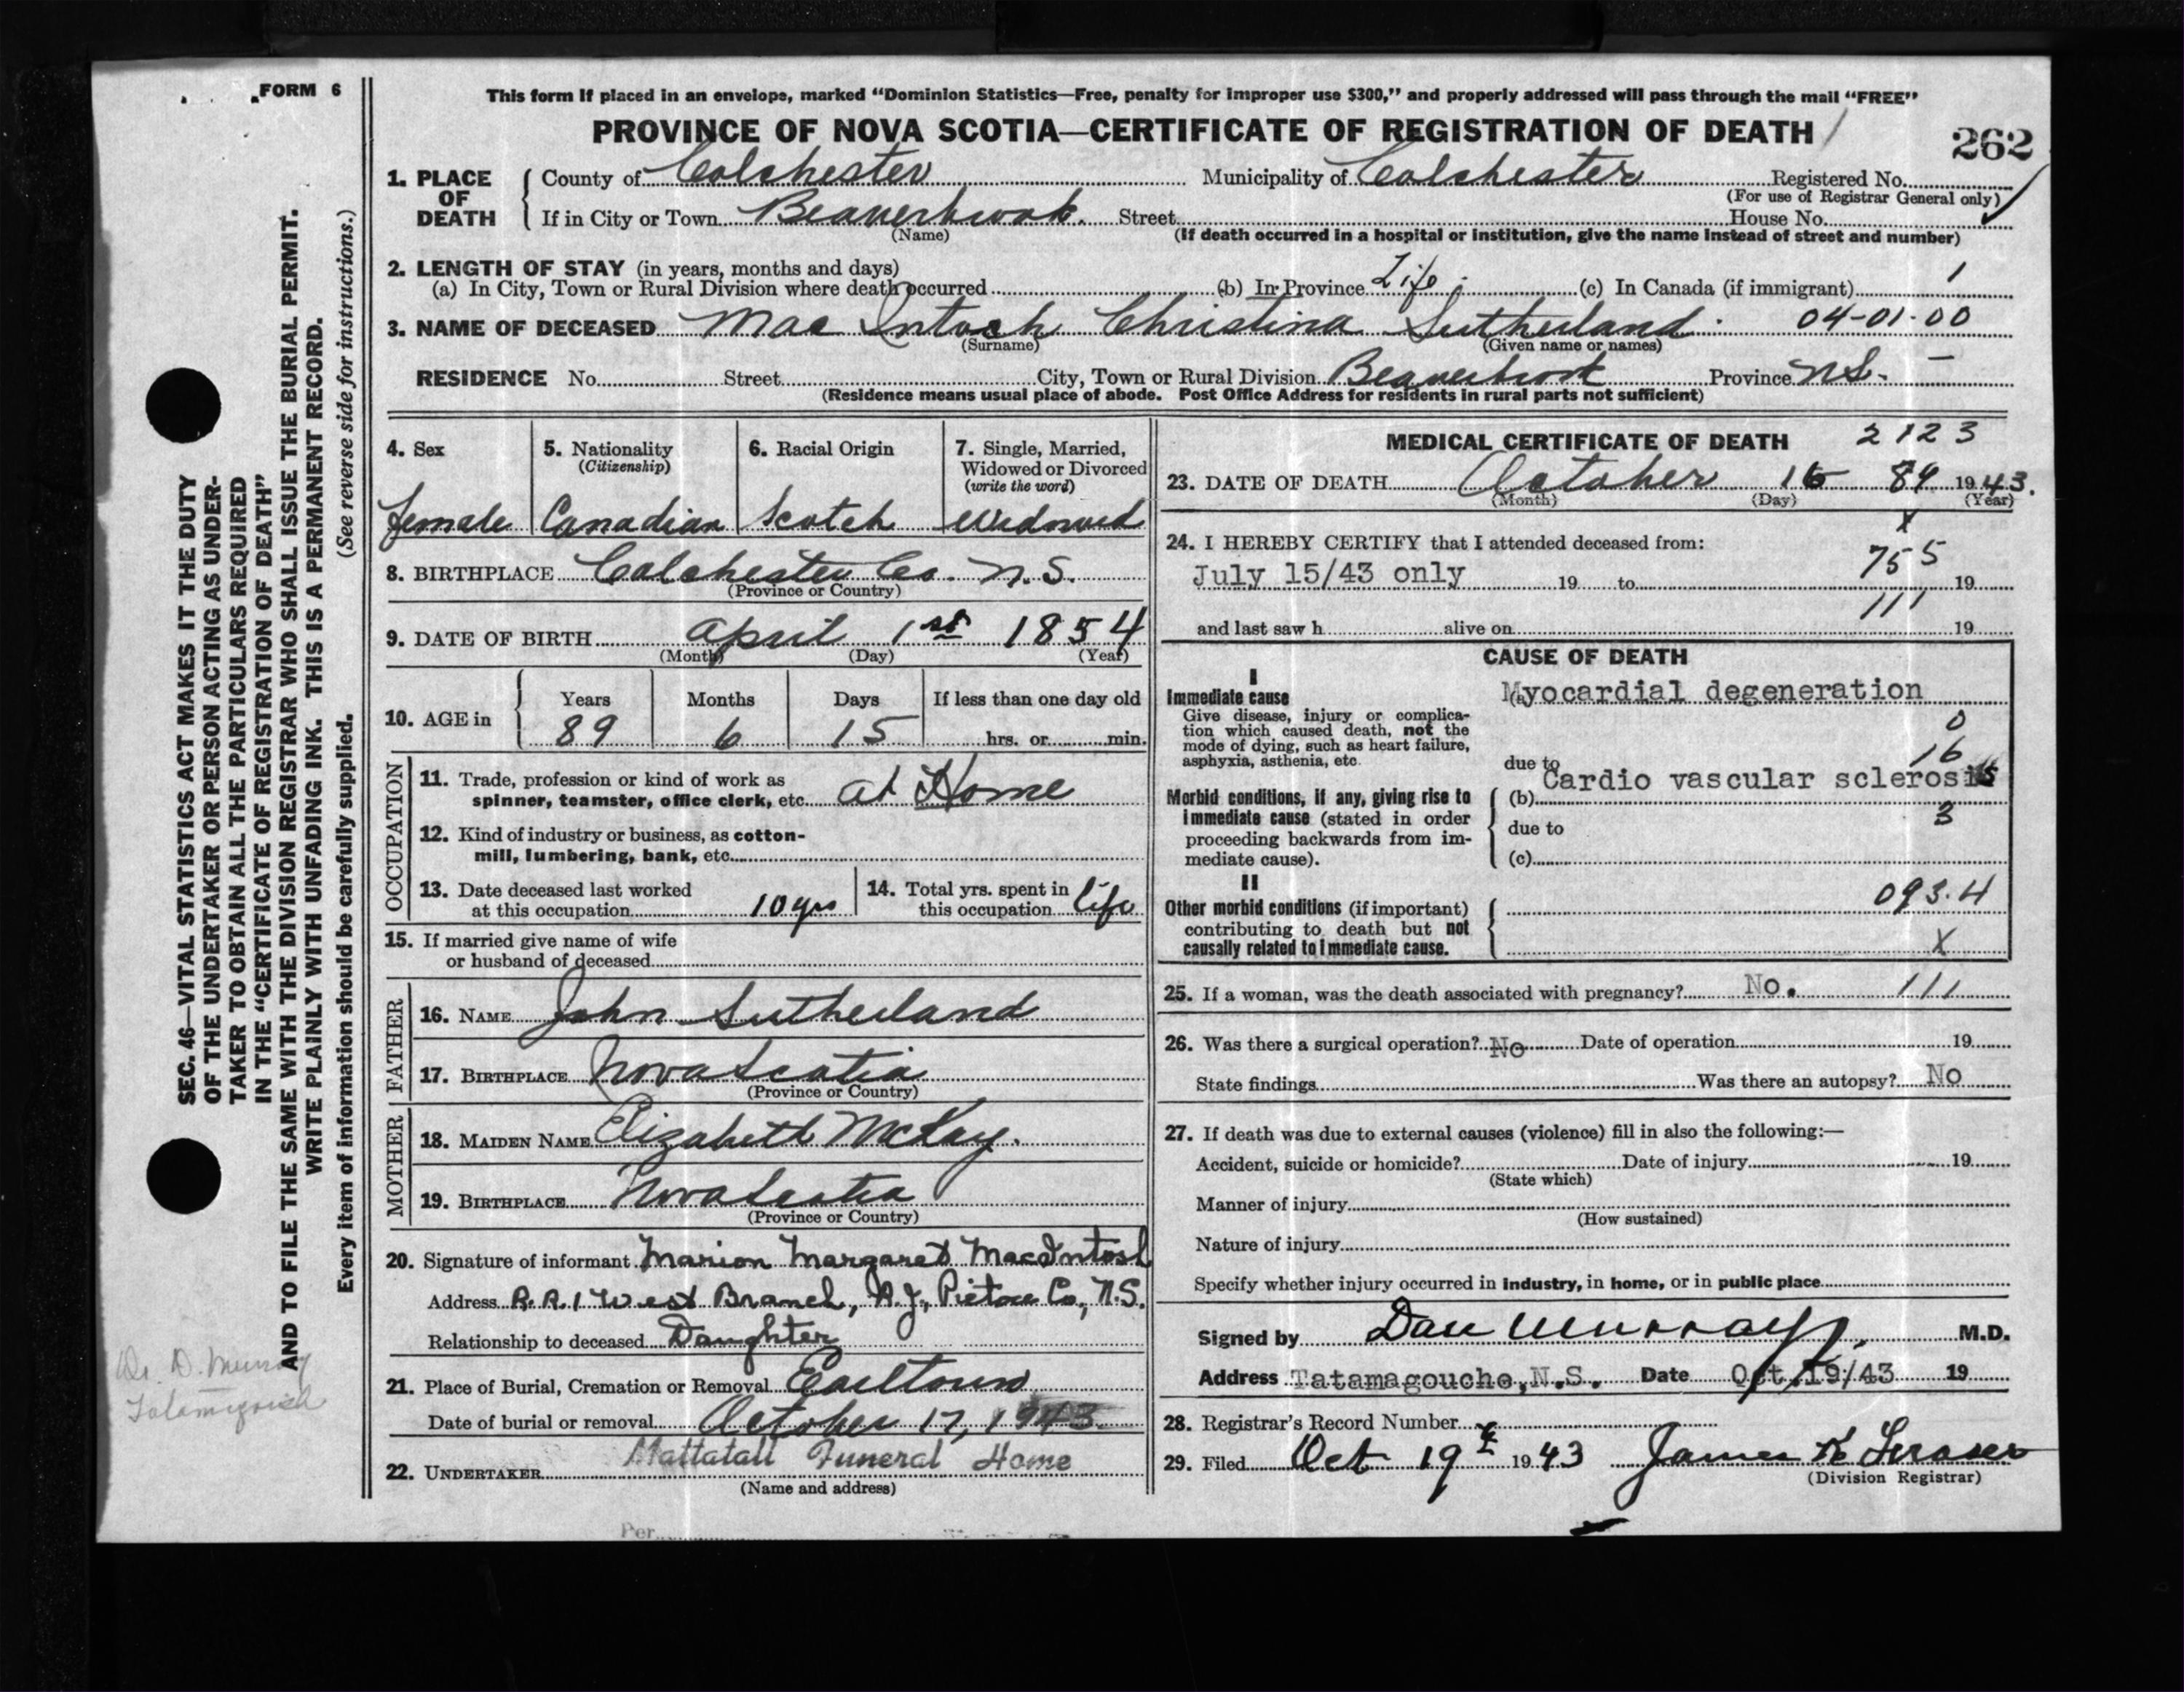 FORM 6
This form if placed in an envelope, marked “Dominion Statistics—Free, penalty for improper use $300,” and properly addressed will pass through the mail “FREE”
PROVINCE OF NOVA SCOTIA—CERTIFICATE OF REGISTRATION OF DEATH
262
1. PLACE OF DEATH
County of Colchester Municipality of Colchester Registered No.
(For use of Registrar General only)
If in City or Town Beaverbrook. Street House No.
(Name) (If death occurred in a hospital or institution, give the name instead of street and number)
2. LENGTH OF STAY (in years, months and days)
(a) In City, Town or Rural Division where death occurred (b) In Province Life. (c) In Canada (if immigrant) 1
3. NAME OF DECEASED Mac Intosh Christina Sutherland. 04-01-00
(Surname) (Given name or names)
RESIDENCE No. Street City, Town or Rural Division Beaverbrook Province N.S. —
(Residence means usual place of abode. Post Office Address for residents in rural parts not sufficient)
4. Sex
Female
5. Nationality
(Citizenship)
Canadian
6. Racial Origin
Scotch
7. Single, Married,
Widowed or Divorced
(write the word)
Widowed
8. BIRTHPLACE Colchester Co. N.S.
(Province or Country)
9. DATE OF BIRTH April 1st 1854
(Month) (Day) (Year)
10. AGE in
Years Months Days If less than one day old
89 6 15 hrs. or min.
OCCUPATION
11. Trade, profession or kind of work as
spinner, teamster, office clerk, etc. at Home
12. Kind of industry or business, as cotton-
mill, lumbering, bank, etc.
13. Date deceased last worked
at this occupation 10 yrs
14. Total yrs. spent in
this occupation life
15. If married give name of wife
or husband of deceased
FATHER
16. NAME John Sutherland
17. BIRTHPLACE Nova Scotia
(Province or Country)
MOTHER
18. MAIDEN NAME Elizabeth McKay.
19. BIRTHPLACE Nova Scotia
(Province or Country)
20. Signature of informant Marion Margaret MacIntosh
Address R.R.1 West Branch, R.J., Pictou Co, N.S.
Relationship to deceased Daughter
21. Place of Burial, Cremation or Removal Earltown
Date of burial or removal October 17, 1943.
22. UNDERTAKER Mattatall Funeral Home
(Name and address)
Per
MEDICAL CERTIFICATE OF DEATH 2123
23. DATE OF DEATH October 16 89 1943.
(Month) (Day) (Year)
X
24. I HEREBY CERTIFY that I attended deceased from:
755
July 15/43 only 19 to 19
111
and last saw h alive on 19
CAUSE OF DEATH
I
Immediate cause
Give disease, injury or complica-
tion which caused death, not the
mode of dying, such as heart failure,
asphyxia, asthenia, etc.
(a) Myocardial degeneration
0
16
due to
Morbid conditions, if any, giving rise to
immediate cause (stated in order
proceeding backwards from im-
mediate cause).
(b) Cardio vascular sclerosis
3
due to
(c)
II
Other morbid conditions (if important)
contributing to death but not
causally related to immediate cause.
093.4
X
25. If a woman, was the death associated with pregnancy? No. 111
26. Was there a surgical operation? No Date of operation 19
State findings Was there an autopsy? No
27. If death was due to external causes (violence) fill in also the following:—
Accident, suicide or homicide? Date of injury 19
(State which)
Manner of injury
(How sustained)
Nature of injury
Specify whether injury occurred in industry, in home, or in public place
Signed by Dan Murray M.D.
Address Tatamagouche, N.S. Date Oct. 19/43 19
28. Registrar's Record Number
29. Filed Oct 19th 1943 James K Fraser
(Division Registrar)
SEC. 46—VITAL STATISTICS ACT MAKES IT THE DUTY
OF THE UNDERTAKER OR PERSON ACTING AS UNDER-
TAKER TO OBTAIN ALL THE PARTICULARS REQUIRED
IN THE “CERTIFICATE OF REGISTRATION OF DEATH”
AND TO FILE THE SAME WITH THE DIVISION REGISTRAR WHO SHALL ISSUE THE BURIAL PERMIT.
WRITE PLAINLY WITH UNFADING INK. THIS IS A PERMANENT RECORD.
Every item of information should be carefully supplied. (See reverse side for instructions.)
Dr. D. Murray